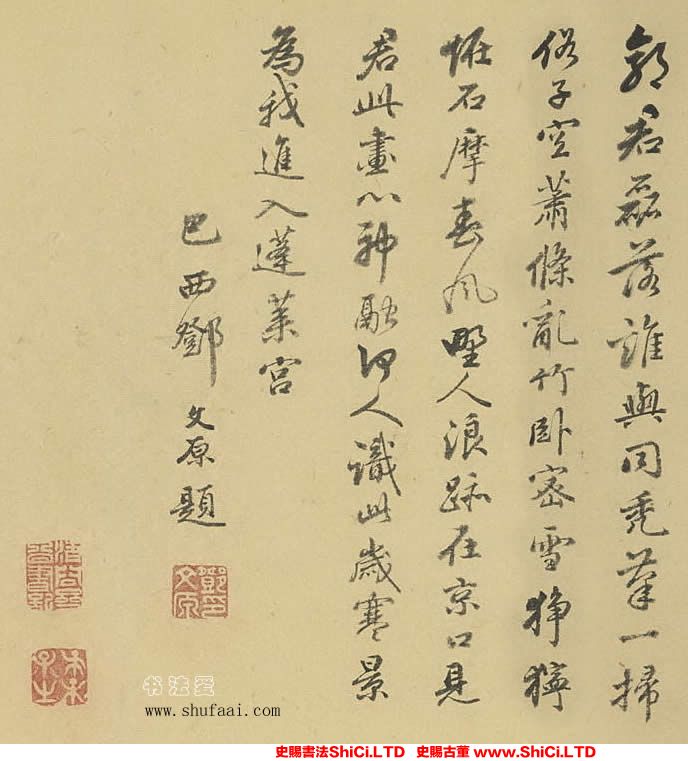 郭君磊落誰與同禿筆一掃
俗子空蕭條亂竹臥密雪狰獰
怪石摩春風野人浪跡在京口見
君此畫心神融何人識此歲寒景
為我進入蓬萊宮
巴西鄧文原題
鄧文原印
書法愛
www.shufaai.com
史賜書法ShiCi.LTD 史賜古董 www.ShiCi.LTD